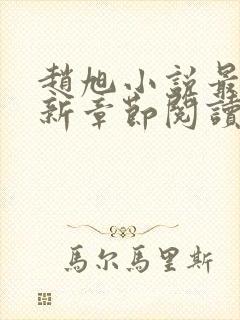 趙旭小說最
新章節閱讀
馬尔馬里斯